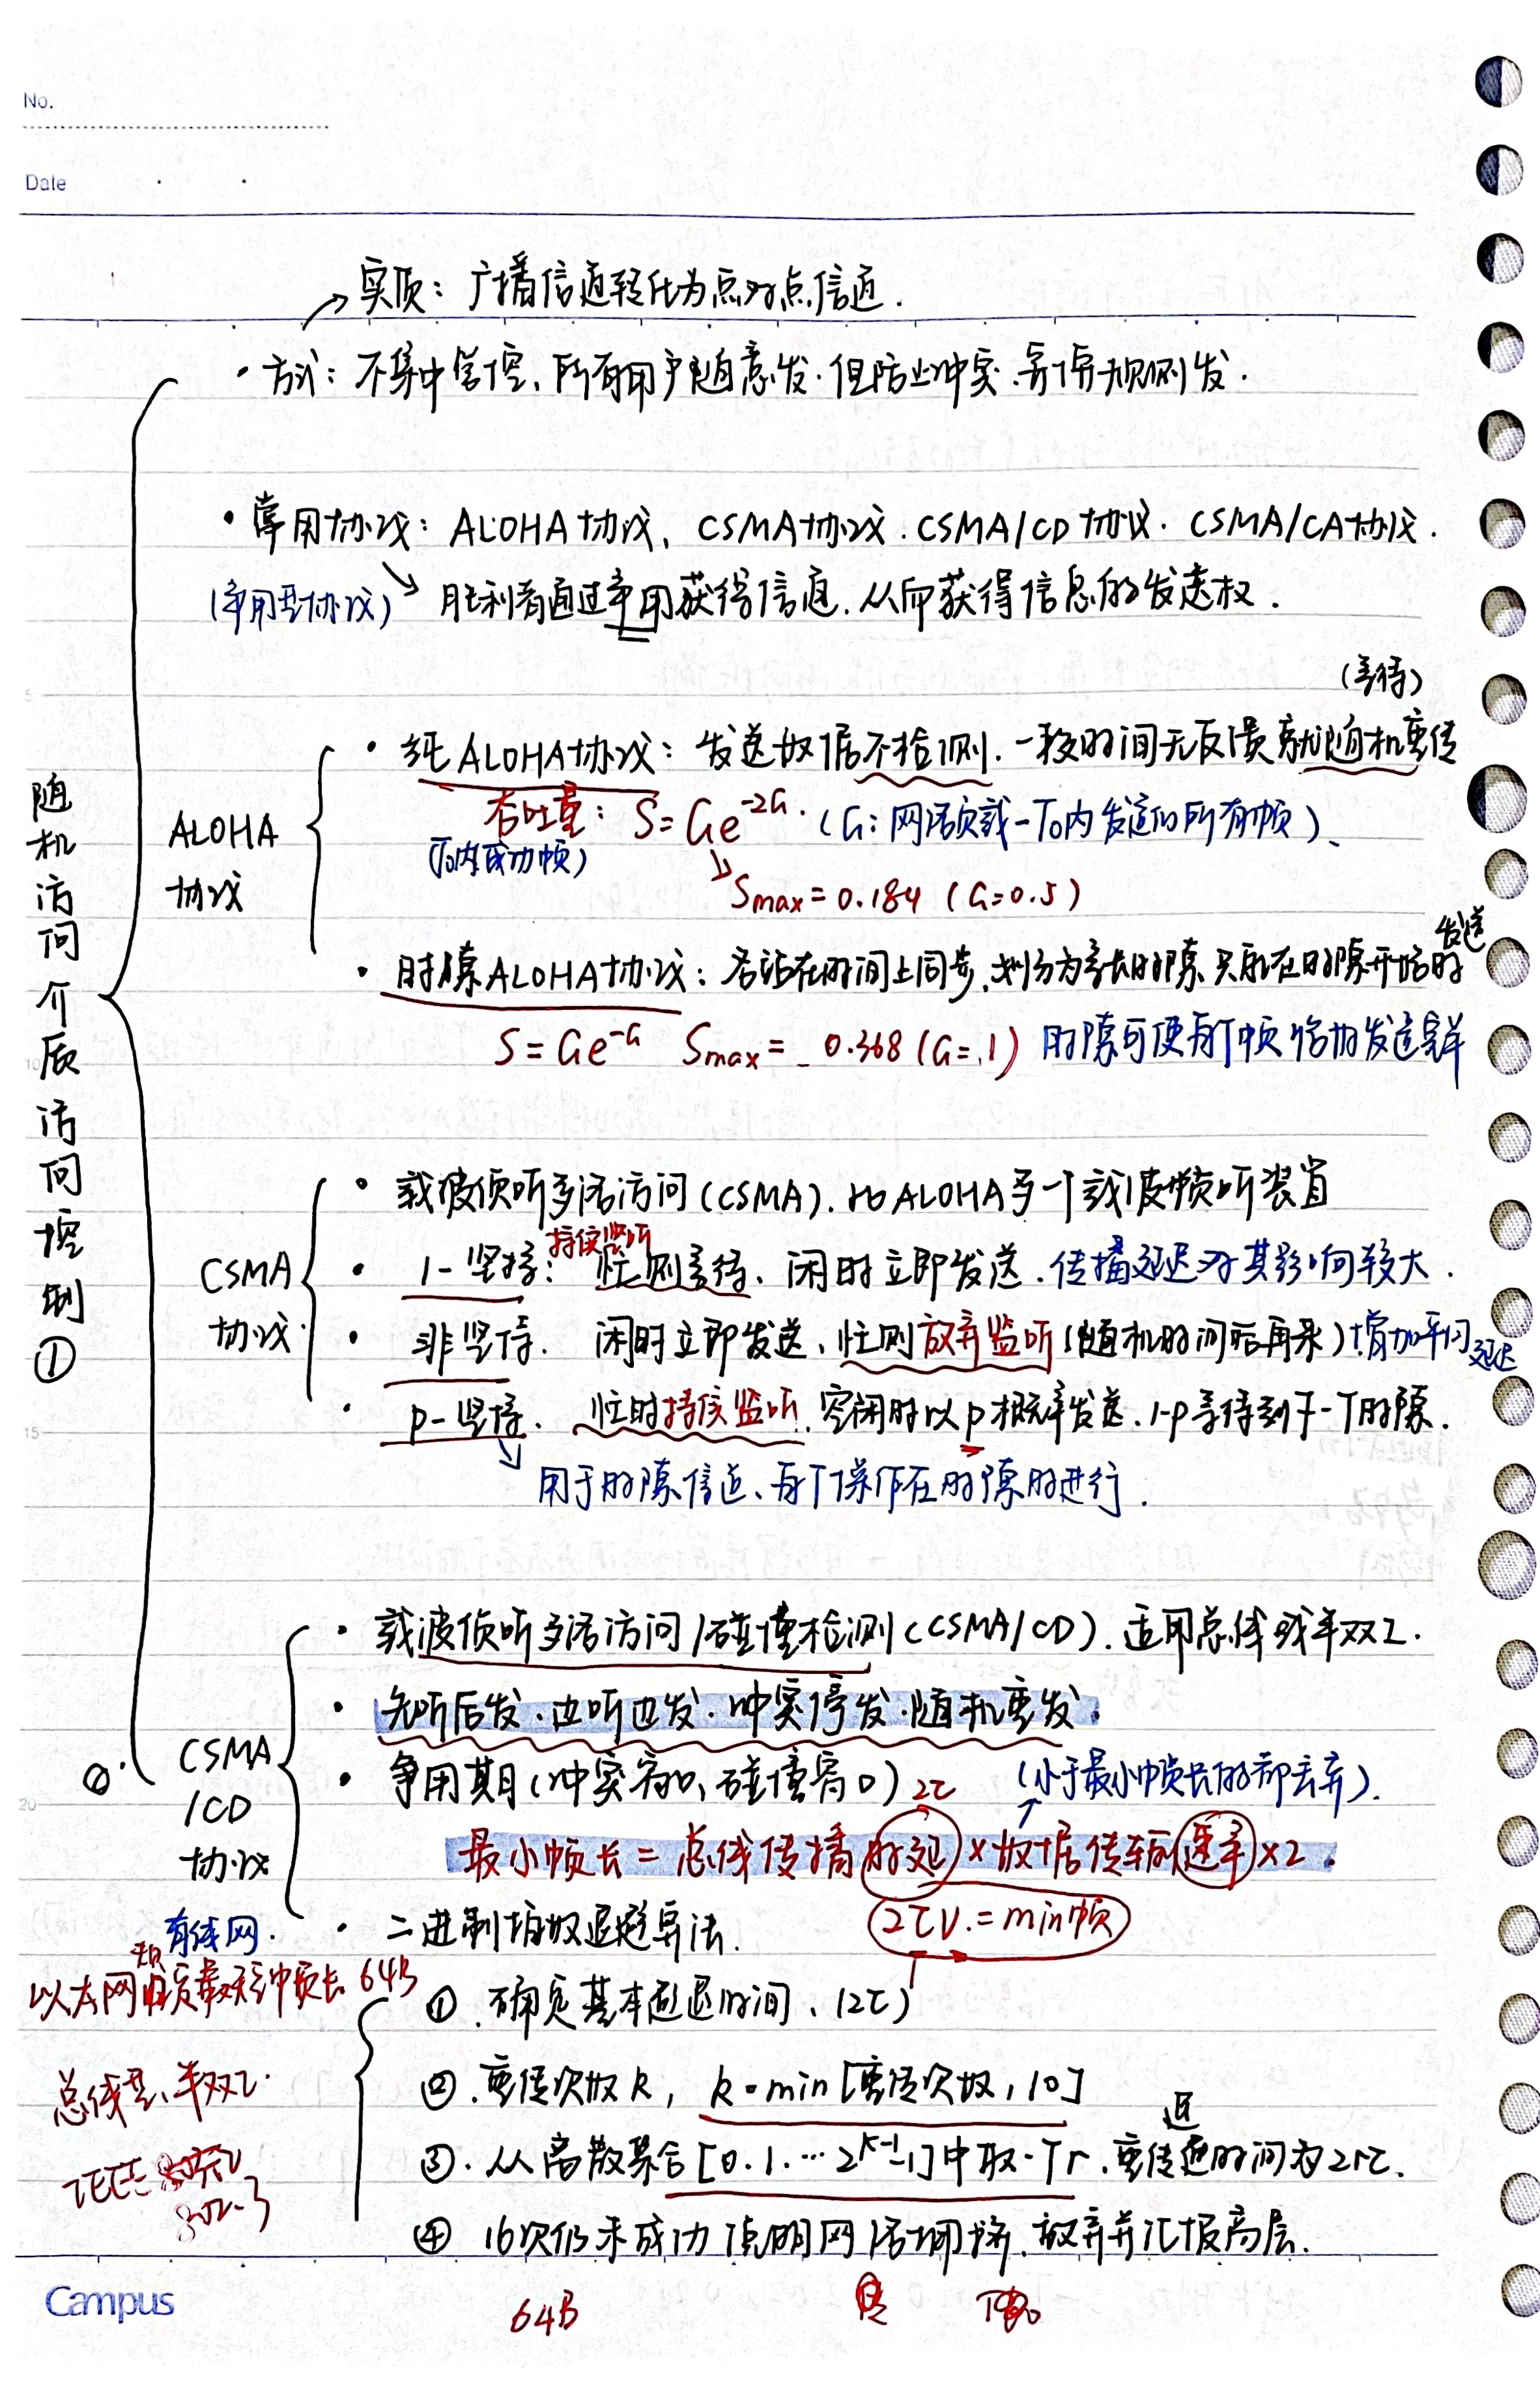 No.
Date
实质：广播信道转化为点对点信道.
·方式：不集中管控、所有用户随意发.但防止冲突.需有规则发.
·常用协议：ALOHA协议、CSMA协议.CSMA/CD协议.CSMA/CA协议.
(争用型协议) 胜利者通过争用获得信道.从而获得信息的发送权.
随机访问介质访问控制①
ALOHA
协议
(等待)
·纯ALOHA协议：发送数据不检测.一段时间无反馈就随机重传
吞吐量：S=Ge^-2G.(G：网络负载-T₀内发送的所有帧)、
(T₀内成功帧)
Smax=0.184 (G=0.5)
发送
·时隙ALOHA协议：各站在时间上同步.划分为等长时隙.只能在时隙开始时
S=Ge^-G Smax= 0.368(G=1) 时隙可使每个帧恰好发送完毕
CSMA
协议
·载波侦听多路访问(CSMA).比ALOHA多一个载波侦听装置
持续监听
·1-坚持：忙则等待、闲时立即发送.传播延迟对其影响较大.
·非坚持. 闲时立即发送、忙则放弃监听(随机时间后再来)增加平均延迟
·p-坚持. 忙时持续监听.空闲时以p概率发送.1-p等待到下一个时隙.
用于时隙信道、每个操作在时隙时进行.
CSMA
/CD
协议
有线网.
·载波侦听多路访问/碰撞检测(CSMA/CD).适用总线或半双工.
·先听后发.边听边发.冲突停发.随机重发.
·争用期(冲突窗口、碰撞窗口)2τ (小于最小帧长的都丢弃).
最小帧长=总线传播时延×数据传输速率×2.
2τV.=min帧
·二进制指数退避算法.
以太网规定最短帧长64B
总线型、半双工.
IEEE
802.3
①.确定基本退避时间、(2τ)
②.重传次数k，k=min[重传次数，10]
③.从离散集合[0.1.…2^k-1]中取一个r.重传退避时间为2rτ.
④ 16次仍未成功 说明网络拥挤.放弃并汇报高层.
Campus
64B